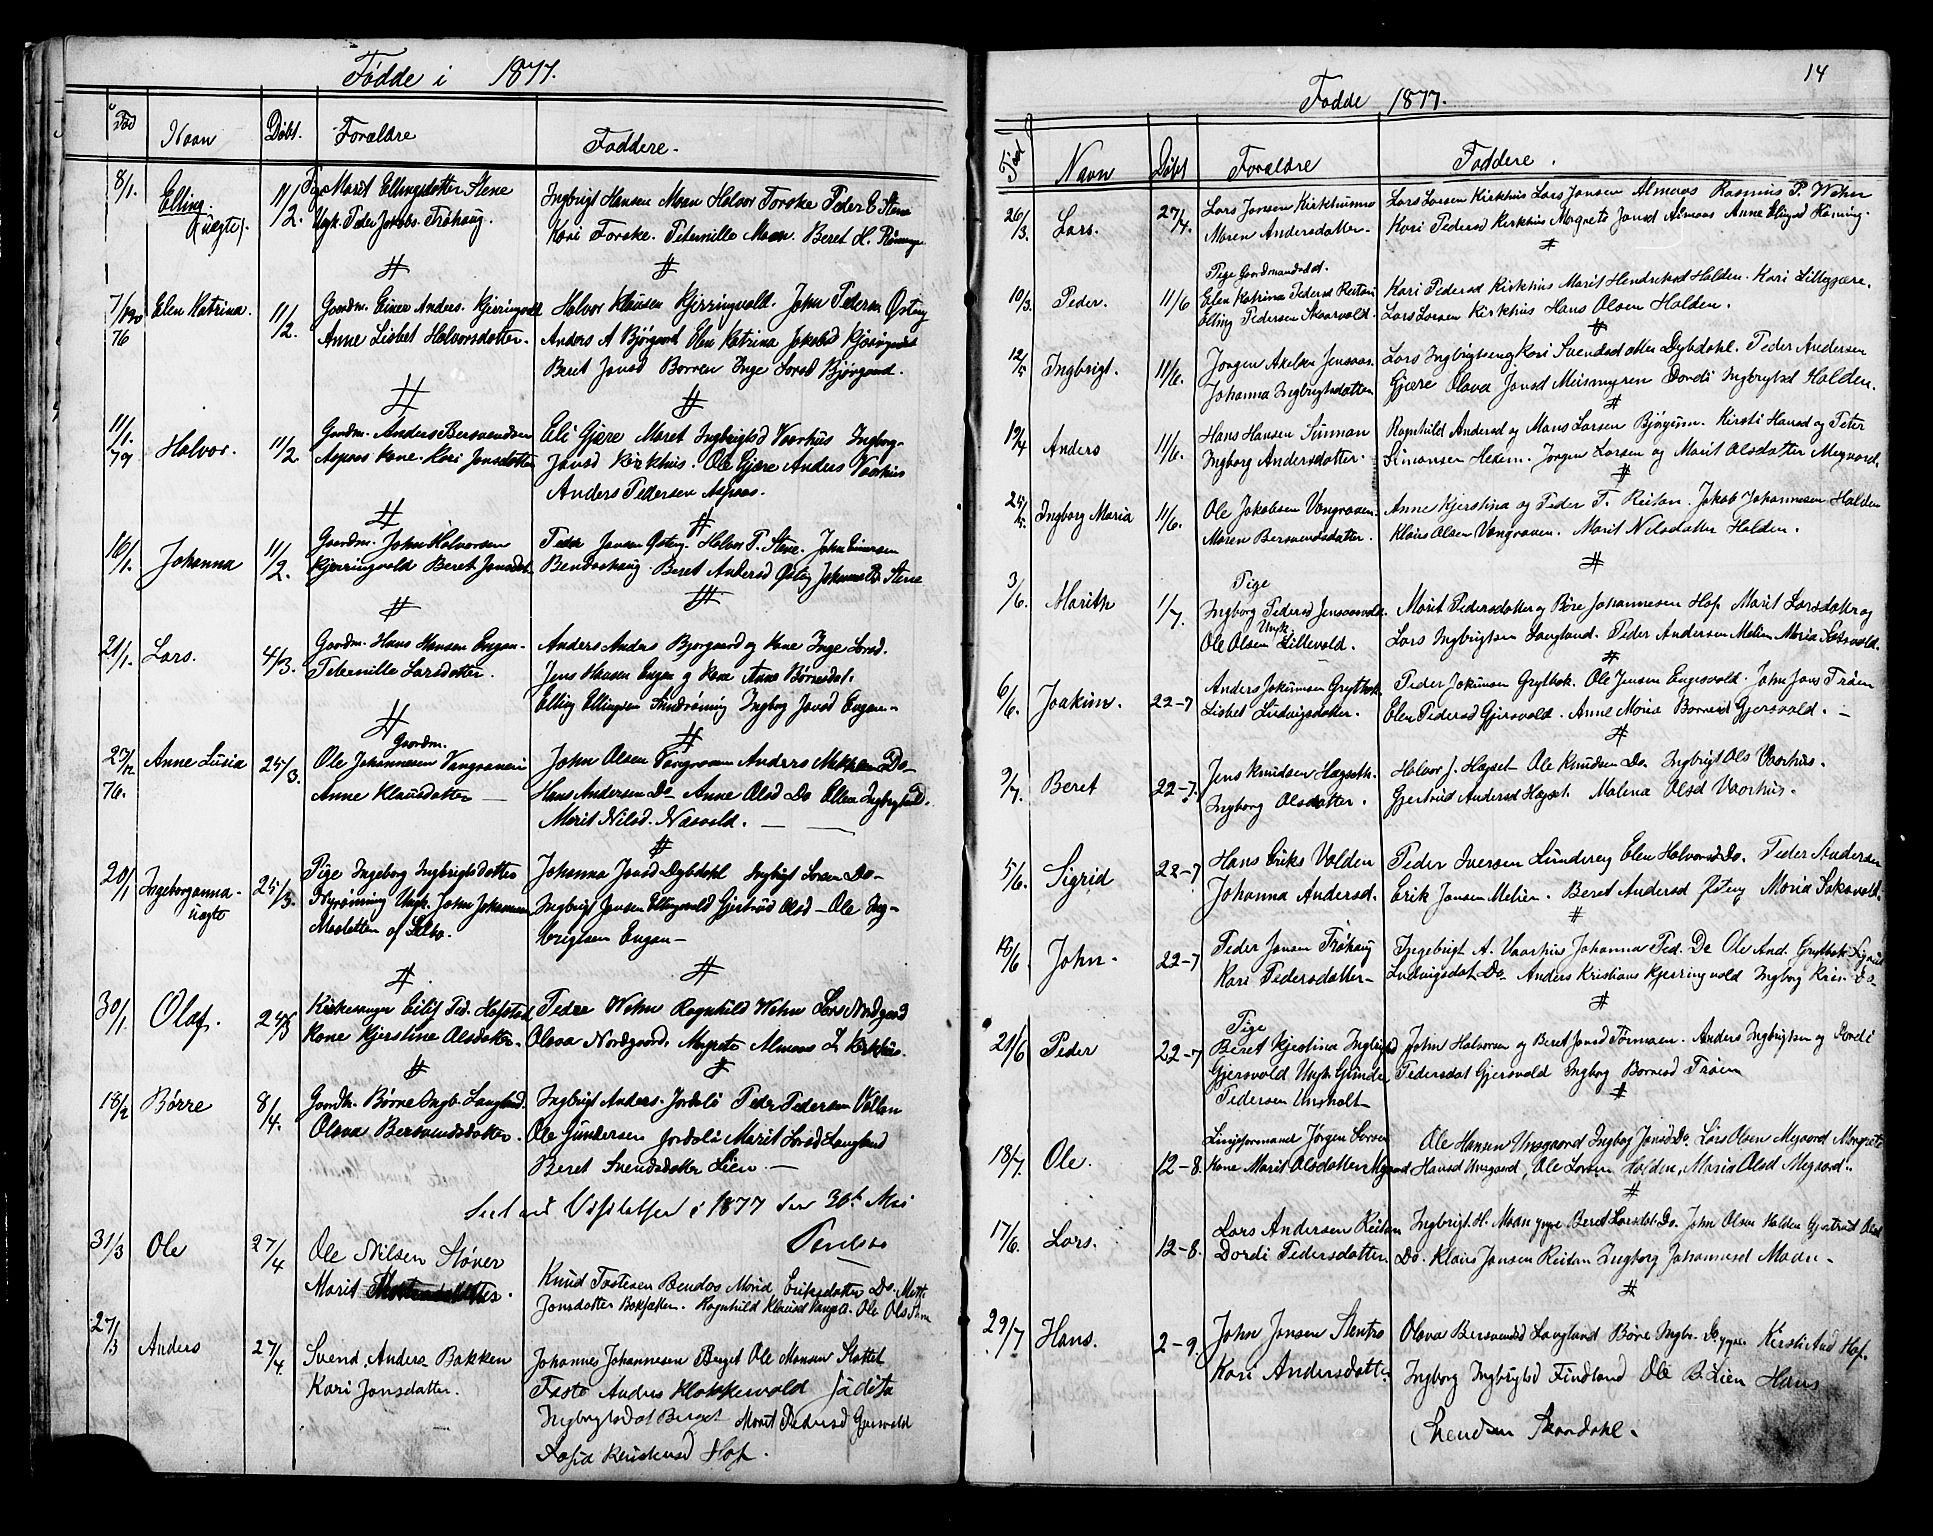 Fødde i 1877.
Fød Navn Døbt. Forældre Faddere.
8/1. Elling. (uægte). 11/2. Pige Marit Ellingsdotter Stene
Ungk. Peder Jakobs. Trøhaug.
Ingbrigt Hansen Moan Halvor Forske Peder E. Stene
Kari Forske. Peternille Moan. Beret H. Rønning
7/12 76 Elen Katrina. 11/2. Gaardm. Einer Anders. Kjerringvold
Anne Lisbet Halvorsdotter.
Halvor Klausen Kjerringvold. John Pedersen Østeng
Anders A Bjørgaard Elen Katrina Jakobsd Kjerringvold
Berit Jonsd Borren Inge Larsd Bjørgaard.
11/1. 77 Halvor. 11/2 Gaardm. Anders Bersvendsen
Aspaas Kone Kari Jonsdotter
Eli Gjære Maret Ingbrigtsd Vaarhus Ingborg
Jonsd Kirkhus. Ole Gjære Anders Vaarhus
Anders Pedersen Aspaas.
16/1. Johanna 11/2. Gaardm. John Halvorsen
Kjerringvold Beret Jonsdat
Peder Jonsen Østeng. Halvor P. Stene. John Einersen
Bendoshaug. Beret Andersd Østeng Johanna P. Stene
21/1. Lars. 4/3. Gaardm. Hans Hansen Engan.
Peternille Larsdotter.
Anders Anders Bjørgaard og Kone Inge Larsd.
Jens Hansen Engan og Kone Anne Børresdat.
Elling Ellingsen Sundrønning Ingborg Jonsd Engan.
25/12 76. Anne Lusia 25/3. Gaardm.
Ole Johannesen Vangraven
Anne Klausdotter
John Olsen Vangraven Anders Do
Hans Andersen Do Anne Olsd Do Ellen Ingbrigtsd.
Marit Nilsd. Næsvold.
20/1 Ingeborganna uægte 25/3. Pige Ingeborg Ingbrigtsdotter
Nyrønning Ungk. John Johannesen
Mosletten af Selbo.
Johanna Jonsd Dybdahl Ingbrigt Larsen Do
Ingbrigt Jonsen Ellingsvold Gjertrud Olsd Ole Ing-
brigtsen Engan
30/1. Olaf. 25/3 Kirkesanger Eilif Ped. Hofstad
Kone Kjerstine Olsdotter.
Pedre Wehn Ragnhild Wehn Lars Nordgaard
Olava Nordgaard. Magrete Almaas L Kirkhus.
18/2 Børre 8/4. Gaardm. Børre Ingb. Langland.
Olava Bersvendsdotter.
Ingbrigt Anders. Jordalö Peder Pedersen Vollan
Ole Gundersen Jordalö Marit Larsd Langland
Beret Svendsdotter Lien.
Seet ved Visitatsen i 1877 den 30te Mai
31/3 Ole 27/4 Ole Nilsen Støver
Marit
Knud Tostesen Bendos Marid Eriksdotter Do. Mett
Jonsdotter Bakjakken. Ragnhild Klausd
27/3 Anders 27/4 Svend Anders Bakken
Kari Jonsdotter.
Johannes Johannesen Berget Ole Monsen Slottet
Toste Anders Klokkervold
Ingbrigtsdat Berget Marit Pedersd Gjersvold
Hof.
14
Fødde 1877.
Fød Navn Døbt Forældre Faddere.
26/3. Lars. 27/4. Lars Jonsen Kirkhusmo
Maren Andersdatter
Lars Larsen Kirkhus Lars Jonsen Almaas Rasmus P. Wehn
Kari Pedersd Kirkhus Magrete Jonsd Almaas Anne Elingsd Rønning.
10/3. Peder. 11/6 Pige Gaardmandsdat.
Elen Katrina Pedersd Reitan
Elling Pedersen Skaarvold.
Kari Pedersd Kirkhus Marit Hendriksd Halden. Kari Lillegjære.
Lars Larsen Kirkhus Hans Olsen Halden.
12/5 Ingbrigt. 11/6. Jørgen Axelsen Jensaas.
Johanna Ingbrigtsdatter
Lars Ingbrigtsen og Kari Svendsdotter Dybdahl. Peder Andersen
Gjære Olava Jonsd Meismyren Dordi Ingbrigtsd Halden.
19/4 Anders 11/6. Hans Hansen Sunnan
Ingborg Andersdatter.
Ragnhild Andersd og Mons Larsen Bjørgum. Kirsti Hansd og Peter
Simonsen Hexem. Jørgen Larsen og Marit Olsdatter Megaard.
Ingborg Maria 11/6. Ole Jakobsen Vangraven.
Maren Bersvendsdatter.
Anne Kjerstina og Peder P. Reitan. Jakob Johannesen Halden
Klaus Olsen Vangraven. Marit Nilsdatter Halden.
3/6. Marith 1/7. Pige
Ingborg Pedersd Jensaasvold.
Ungk.
Ole Olsen Lillevold.
Marit Pedersdatter og Børe Johannesen Hof Marit Larsdatter og
Lars Ingbrigtsen Langland. Peder Andersen Melien Maria
6/6. Joakim. 22-7 Anders Jokumsen Grytbak.
Lisbet Ludvigsdatter.
Peder Jokumsen Grytbak. Ole Jensen Engesvold. John Jons Trøen
Elen Pedersd Gjersvold. Anne Maria Borresd Gjersvold.
9/7. Beret 22-7. Jens Knudsen Hagseth.
Ingborg Olsdatter.
Halvor J. Hagset Ole Knudsen Do. Ingbrigt Ols Vaarhus.
Gjertrud Andersd Hagset. Malena Olsd Vaarhus.
5/6. Sigrid 22-7 Hans Eriks Volden
Johanna Andersd.
Peder Iversen Lunder og Elen Halvorsd Do. Peder Andersen
Erik Jonsen Melien. Beret Andersd Østeng Marid Saksvold.
18/6 John. 22-7 Peder Jonsen Trøhaug
Kari Pedersdatter
Ingebrigt A. Vaarhus Johanna Ped. Do Ole And. Grytbak Sigrid
Ludvigsdat Do. Anders Kristians Kjerringvold Ingborg Kris. Do
21/6 Peder 22-7 Pige
Beret Kjerstina Ingbrigtsd
Gjersvold Ungk. Gunder
Pedersen Unsholt
John Halvorsen og Beret Jonsd Tørmoen. Anders Ingbrigtsen og Dordi
Pedersdat Gjersvold Ingborg Borresd Trøen
18/7. Ole. 12-8. Linjeformand Jørgen Larsen
Kone Marit Olsdatter Megaard
Ole Hansen Unsgaard Ingbog Jonsd Do. Lars Olsen Megaard Margrete
Hansd Unsgaard, Ole Larsen Halden, Maria Olsd Megaard.
17/6. Lars. 12-8. Lars Andersen Reitan
Dordi Pedersdatter
Ingbrigt H. Moan yngre Beret Larsdat Do. John Olsen Halden Gjertrud Olsd
Do. Klaus Jonsen Reitan Ingborg Johannesd Moan
29/7 Hans. 2-9. John Jonsen Stentrø
Kari Andersdatter
Olava Bersvendsd Langland Børe Ingbr. Do yngre Kirsti And Hof.
Ingborg Ingbrigtsd Findland Ole B. Lien Hans
Svendsen Skardahl.